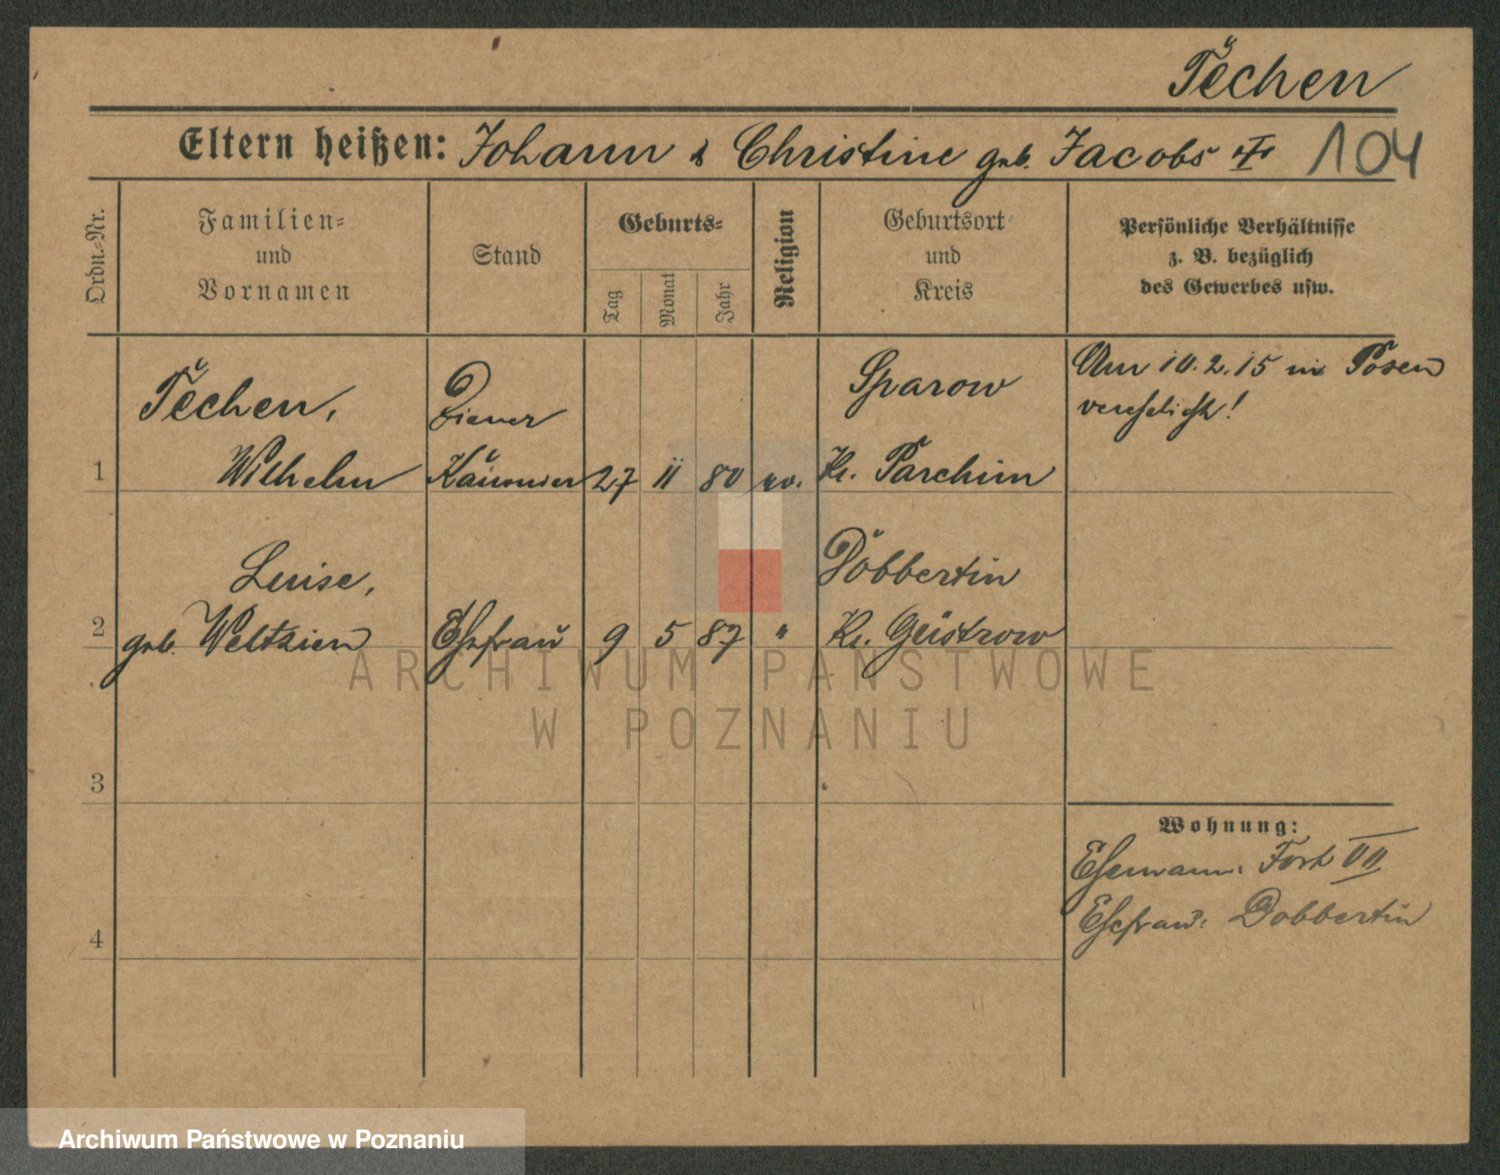 Techen
Eltern heißen: Johann & Christine geb. Jacobs
104
Ordn.-Nr.
Familien-
und
Vornamen
Stand
Geburts-
Tag
Monat
Jahr
Religion
Geburtsort
und
Kreis
Persönliche Verhältnisse
z. B. bezüglich
des Gewerbes usw.
Techen,
Diener
Sparow
Am 10.2.15 in Posen
verehelicht!
1 Wilhelm 27 11 80 ev. Kr. Parchim
Luise,
Dobbertin
2 geb. Weltzien Ehefrau 9 5 87 " Kr. Güstrow
ARCHIWUM PAŃSTWOWE
W POZNANIU
3
Wohnung:
Ehemann: Fort VII
Ehefrau: Dobbertin
4
Archiwum Państwowe w Poznaniu